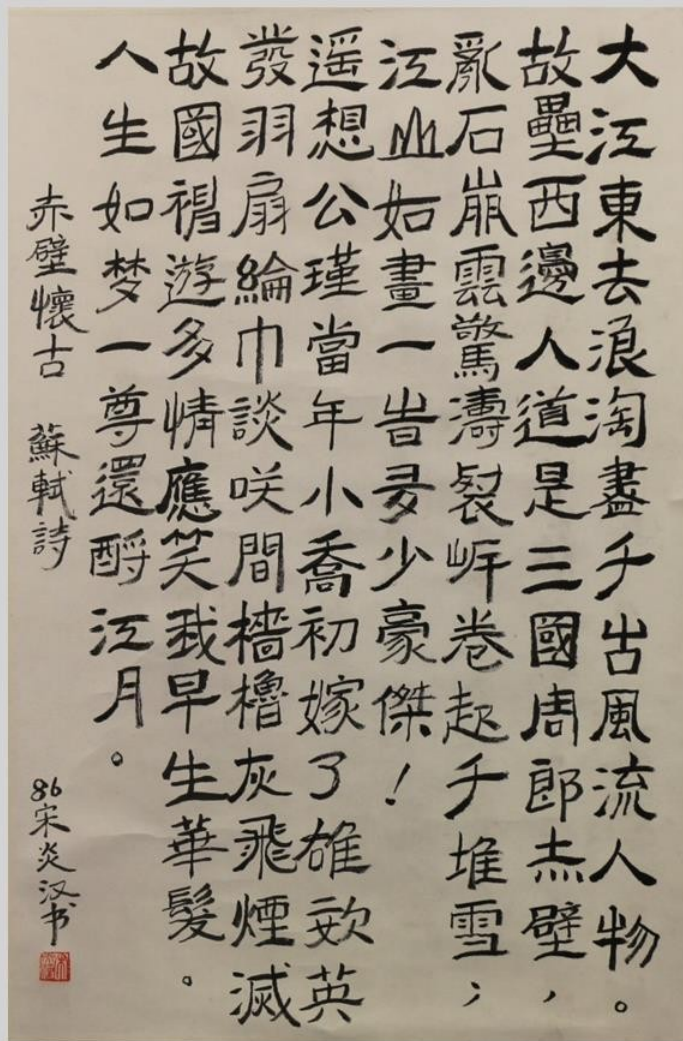 大江東去浪淘盡千古風流人物。
故壘西邊人道是三國周郎赤壁，
亂石崩雲驚濤裂岸卷起千堆雪；
江山如畫一岩多少豪傑！
遥想公瑾當年小喬初嫁了雄姿英
發羽扇綸巾談咲間檣櫓灰飛煙滅
故國裼遊多情應笑我早生華髮。
人生如梦一尊還酹江月。
赤壁懷古 蘇軾詩
86宋炎汉书